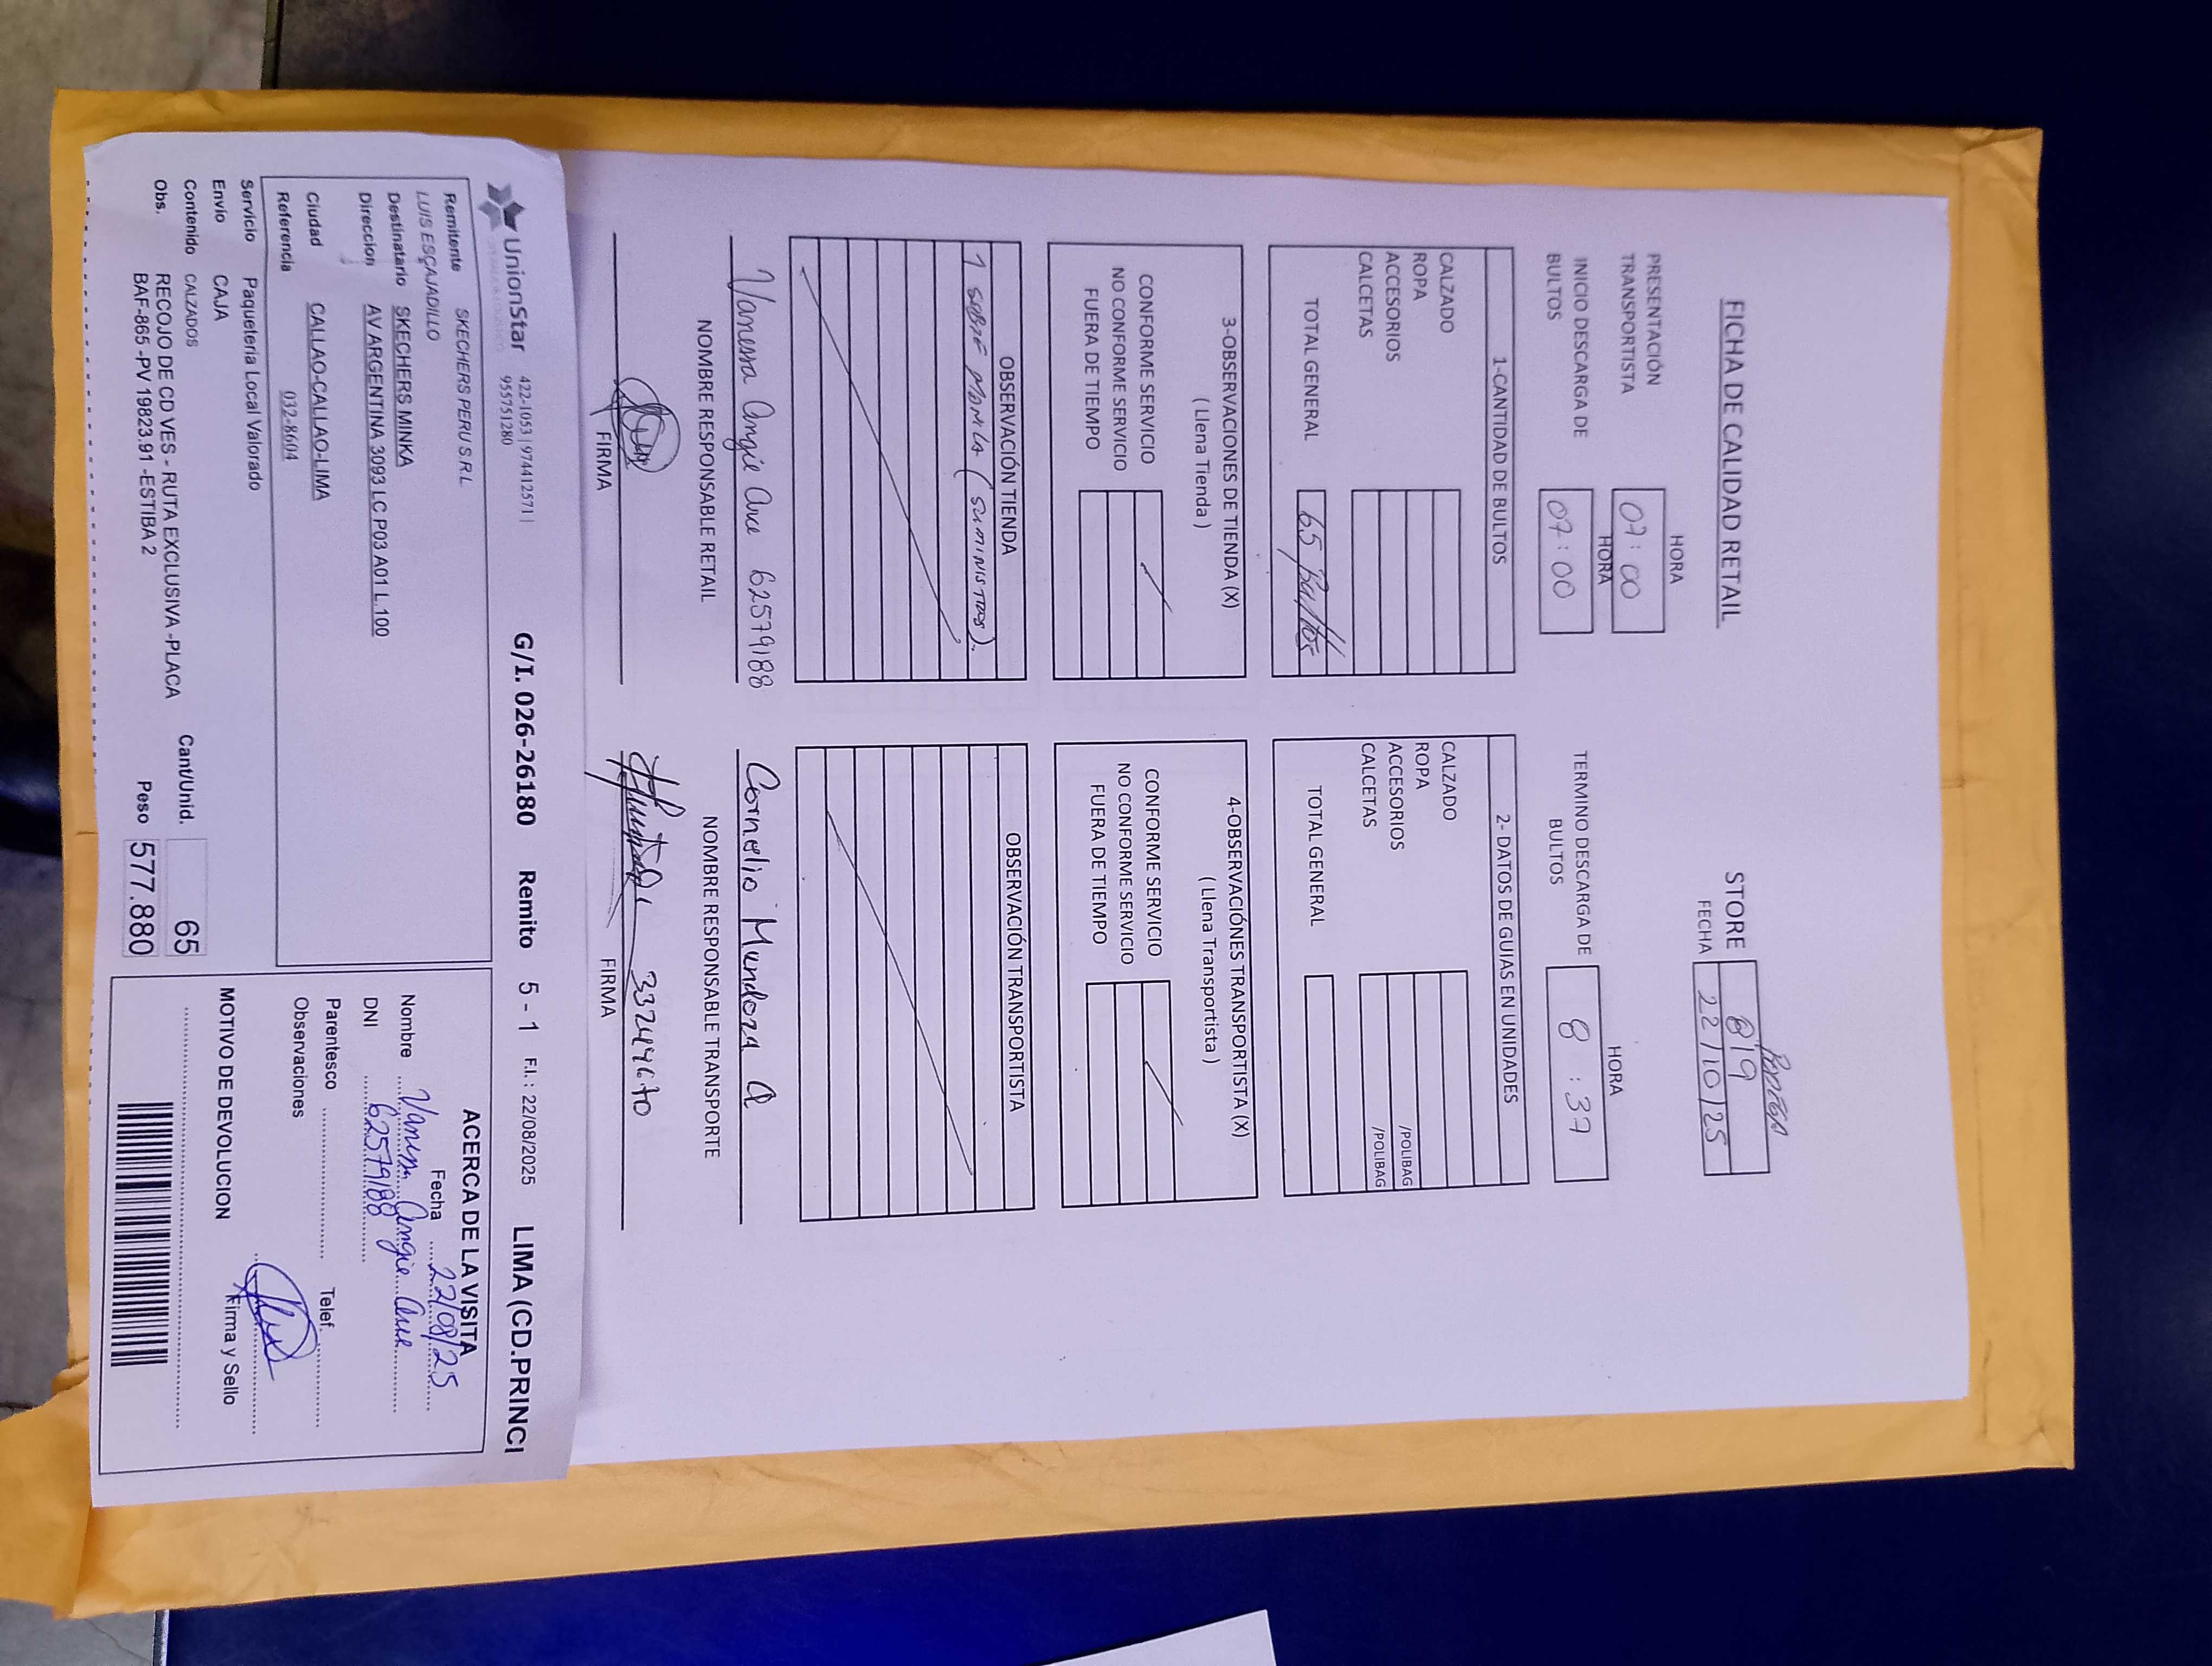 FICHA DE CALIDAD RETAIL
STORE 819
FECHA 22/10/25
HORA
PRESENTACIÓN TRANSPORTISTA 07:00
HORA
INICIO DESCARGA DE BULTOS 07:00
HORA
TERMINO DESCARGA DE BULTOS 8:37
1-CANTIDAD DE BULTOS
CALZADO
ROPA
ACCESORIOS
CALCETAS
TOTAL GENERAL 65 Bultos
2- DATOS DE GUIAS EN UNIDADES
CALZADO
ROPA
ACCESORIOS /POLIBAG
CALCETAS /POLIBAG
TOTAL GENERAL
3-OBSERVACIONES DE TIENDA (X)
( Llena Tienda )
CONFORME SERVICIO
NO CONFORME SERVICIO
FUERA DE TIEMPO
4-OBSERVACIÓNES TRANSPORTISTA (X)
( Llena Transportista )
CONFORME SERVICIO
NO CONFORME SERVICIO
FUERA DE TIEMPO
OBSERVACIÓN TIENDA
1 SOBRE (SUMINISTROS).
OBSERVACIÓN TRANSPORTISTA
Vanessa Angie Arce 62579188
NOMBRE RESPONSABLE RETAIL
Cornelio Mendoza
NOMBRE RESPONSABLE TRANSPORTE
FIRMA
FIRMA
UnionStar 422-1053 | 974412571 |
955751280
G/I. 026-26180 Remito 5 - 1 F.I. : 22/08/2025 LIMA (CD.PRINCI
Remitente SKECHERS PERU S.R.L
LUIS ESCAJADILLO
Destinatario SKECHERS MINKA
Direccion AV ARGENTINA 3093 LC P03 A01 L.100
Ciudad CALLAO-CALLAO-LIMA
Referencia 032-8604
Servicio Paqueteria Local Valorado
Envio CAJA
Contenido CALZADOS
Obs. RECOJO DE CD VES - RUTA EXCLUSIVA -PLACA
BAF-865 -PV 19823.91 -ESTIBA 2
Cant/Unid. 65
Peso 577.880
ACERCA DE LA VISITA
Fecha 22/08/25
Nombre Vanessa Angie Arce
DNI 62579188
Parentesco Telef.
Observaciones
Firma y Sello
MOTIVO DE DEVOLUCION